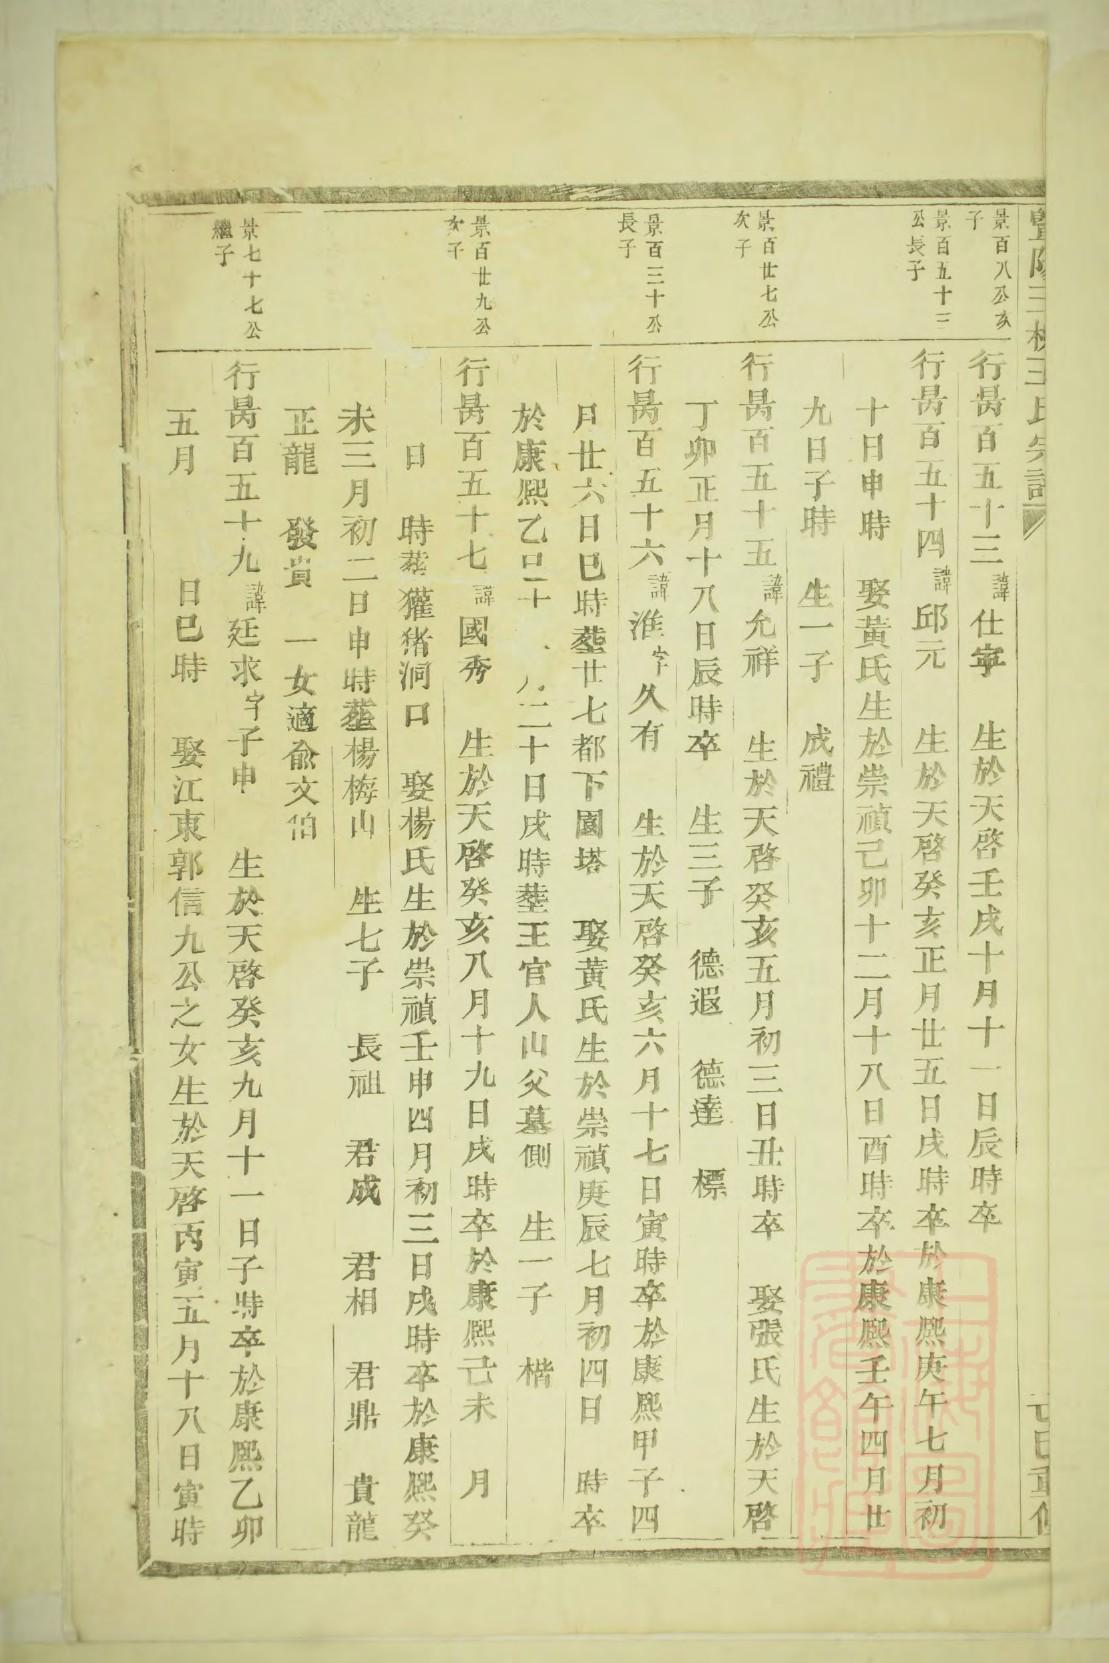 暨陽三
王氏宗譜
重修
景百八公次
子
行昺百五十三 諱 仕寧 生於天啓壬戌十月十一日辰時卒
景百五十三
公長子
行昺百五十四 諱 邱元 生於天啓癸亥正月廿五日戌時卒於康熙庚午七月初
十日申時 娶黃氏生於崇禎己卯十二月十八日酉時卒於康熙壬午四月廿
九日子時 生一子 成禮
景百廿七公
次子
行昺百五十五 諱 允祥 生於天啓癸亥五月初三日丑時卒 娶張氏生於天啓
丁卯正月十八日辰時卒 生三子 德遐 德達 標
景百三十公
長子
行昺百五十六 諱 淮 字 久有 生於天啓癸亥六月十七日寅時卒於康熙甲子四
月廿六日巳時塟廿七都下園塔 娶黃氏生於崇禎庚辰七月初四日 時卒
於康熙乙 二十日戌時塟王官人山父墓側 生一子 楷
景百廿九公
次子
行昺百五十七 諱 國秀 生於天啓癸亥八月十九日戌時卒於康熙己未 月
日 時塟獾猪洞口 娶楊氏生於崇禎壬申四月初三日戌時卒於康熙癸
未三月初二日申時塟楊梅山 生七子 長祖 君成 君相 君鼎 貴龍
正龍 發貴 一女適俞文伯
景七十七公
繼子
行昺百五十九 諱 廷求 字 子申 生於天啓癸亥九月十一日子時卒於康熙乙卯
五月 日巳時 娶江東郭信九公之女生於天啓丙寅五月十八日寅時